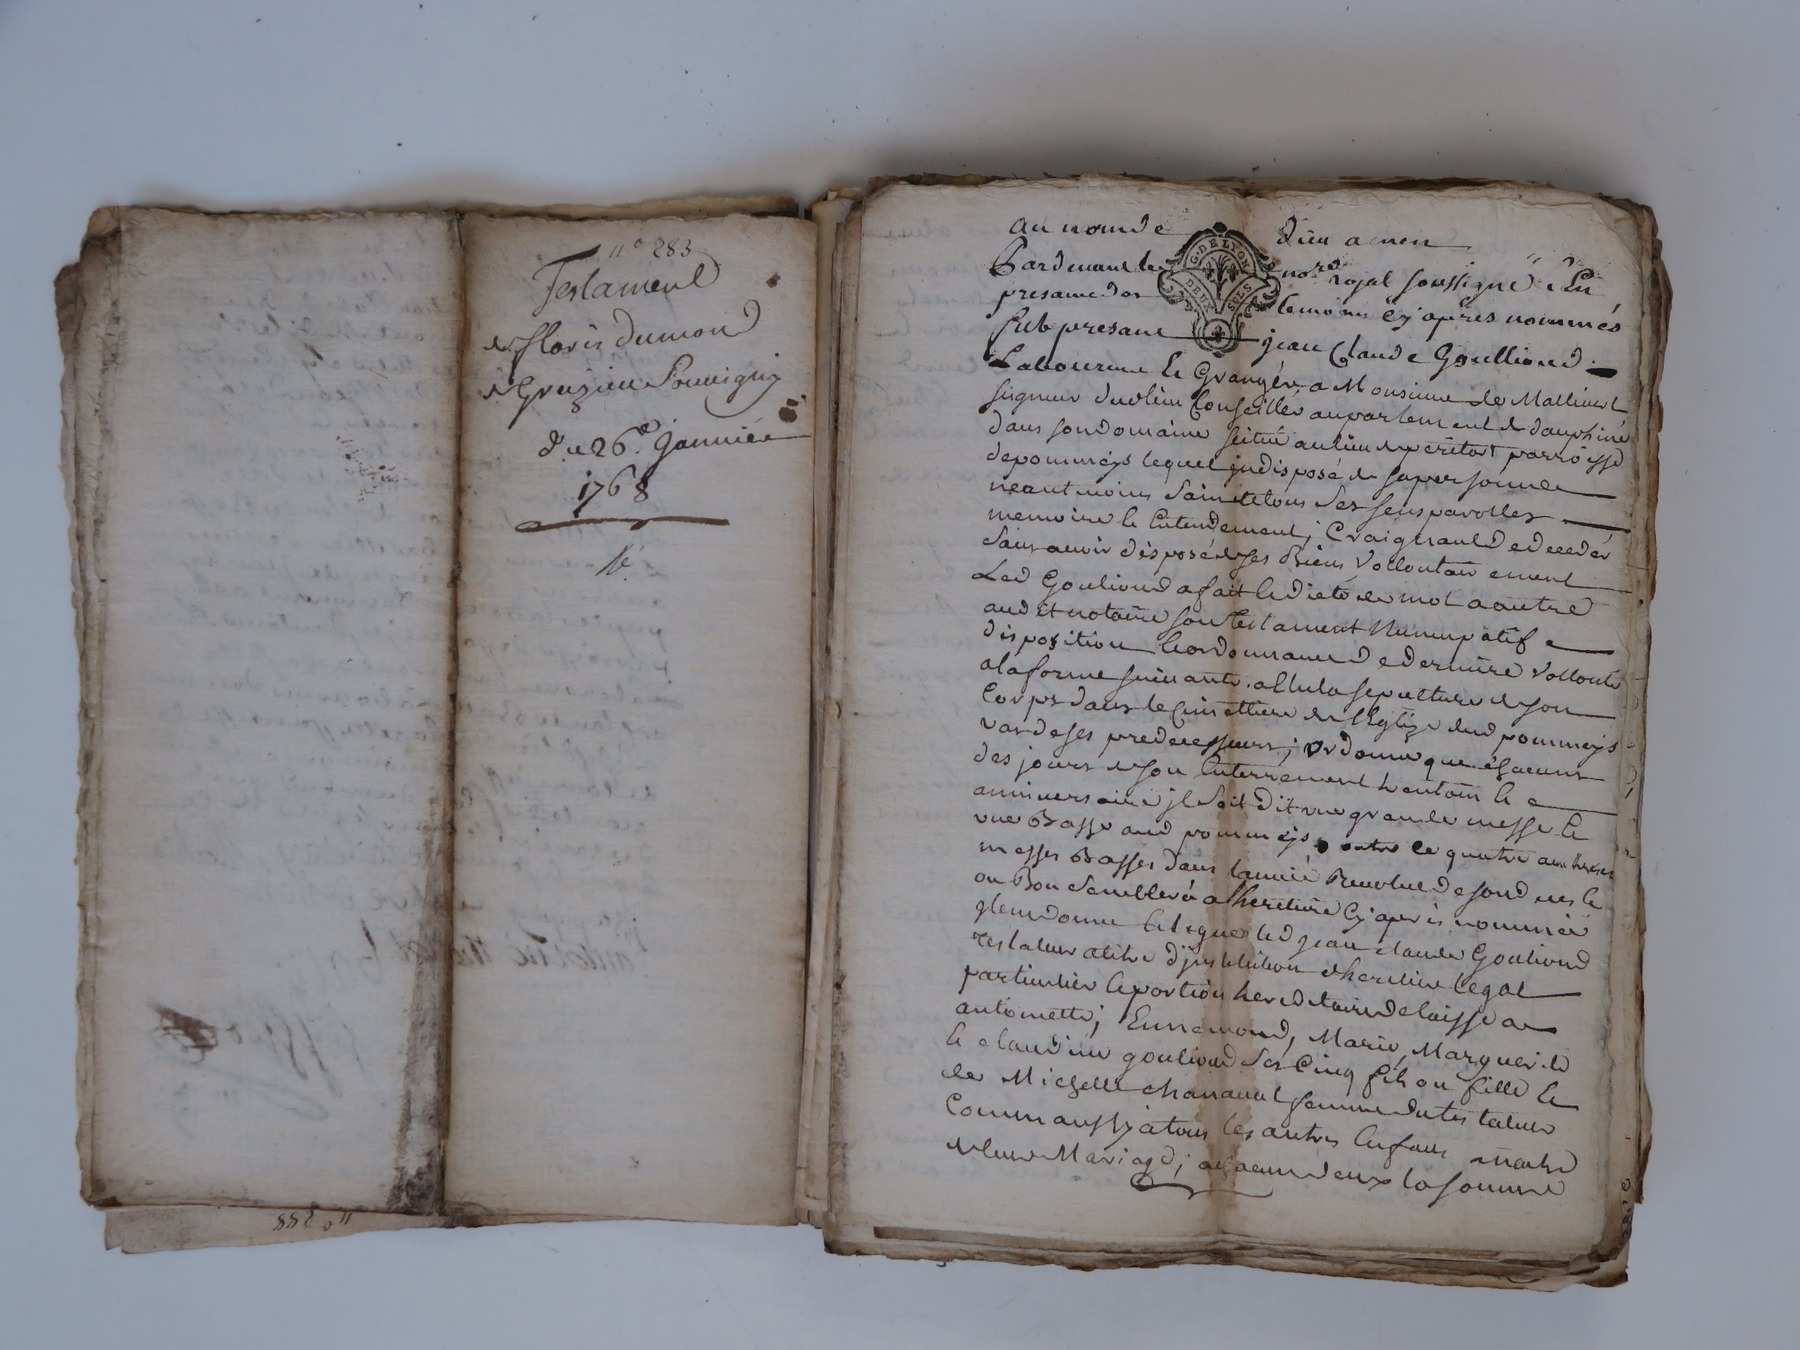 n° 283
Testament
de floris dumond
de Grezieu Souvigny
du 26e. Janvier
1768
n° 288
au nom de dieu amen
G. DE LYON
DEUX SOLS
Pardevant le nore royal soussigné & En
presance des temoins cy apres nommés
fut presant jean Claude Goullioud
Laboureur & Granger a Monsieur de
seigneur Conseiller au parlement de dauphiné
dans son domaine scitué au lieu de parroisse
de pommeys lequel indisposé de sa personne
neantmoins sain de tous ses sens parolles
memoire & Entendement, Craignant de deceder
sans avoir disposé de ses Biens Vollontairement
Led Goulioud a fait & dicté de mot a autre
aud et notaire son testament Nuncupatif
disposition & ordonnance de derniere Vollonté
a la forme suivante. a Elu la sepulture de son
Corps dans le Cimettiere de l'Eglize dud pommeys
vas de ses predecesseurs; ordonne que chacuns
des jours de son Enterrement & anniversaire
il soit dit une grande messe &
une Basse aud pommeys, outre ce quatre
messes Basses dans l'année Revolue de son deces &
ou Bon semblera a l'heretiere Cy apres nommée
led jean claude Goulioud
testateur a titre d'institution & heretier legat
particulier & portion hereditaire delaisse a
antoinette, Ennemond, Marie, Marguerite
& claudine goulioud ses Cinq fils ou fille &
de Michelle chanavat femme du testateur
Comm aussy a tous les autres Enfans
de leur Mariage; a chacun d'eux la somme